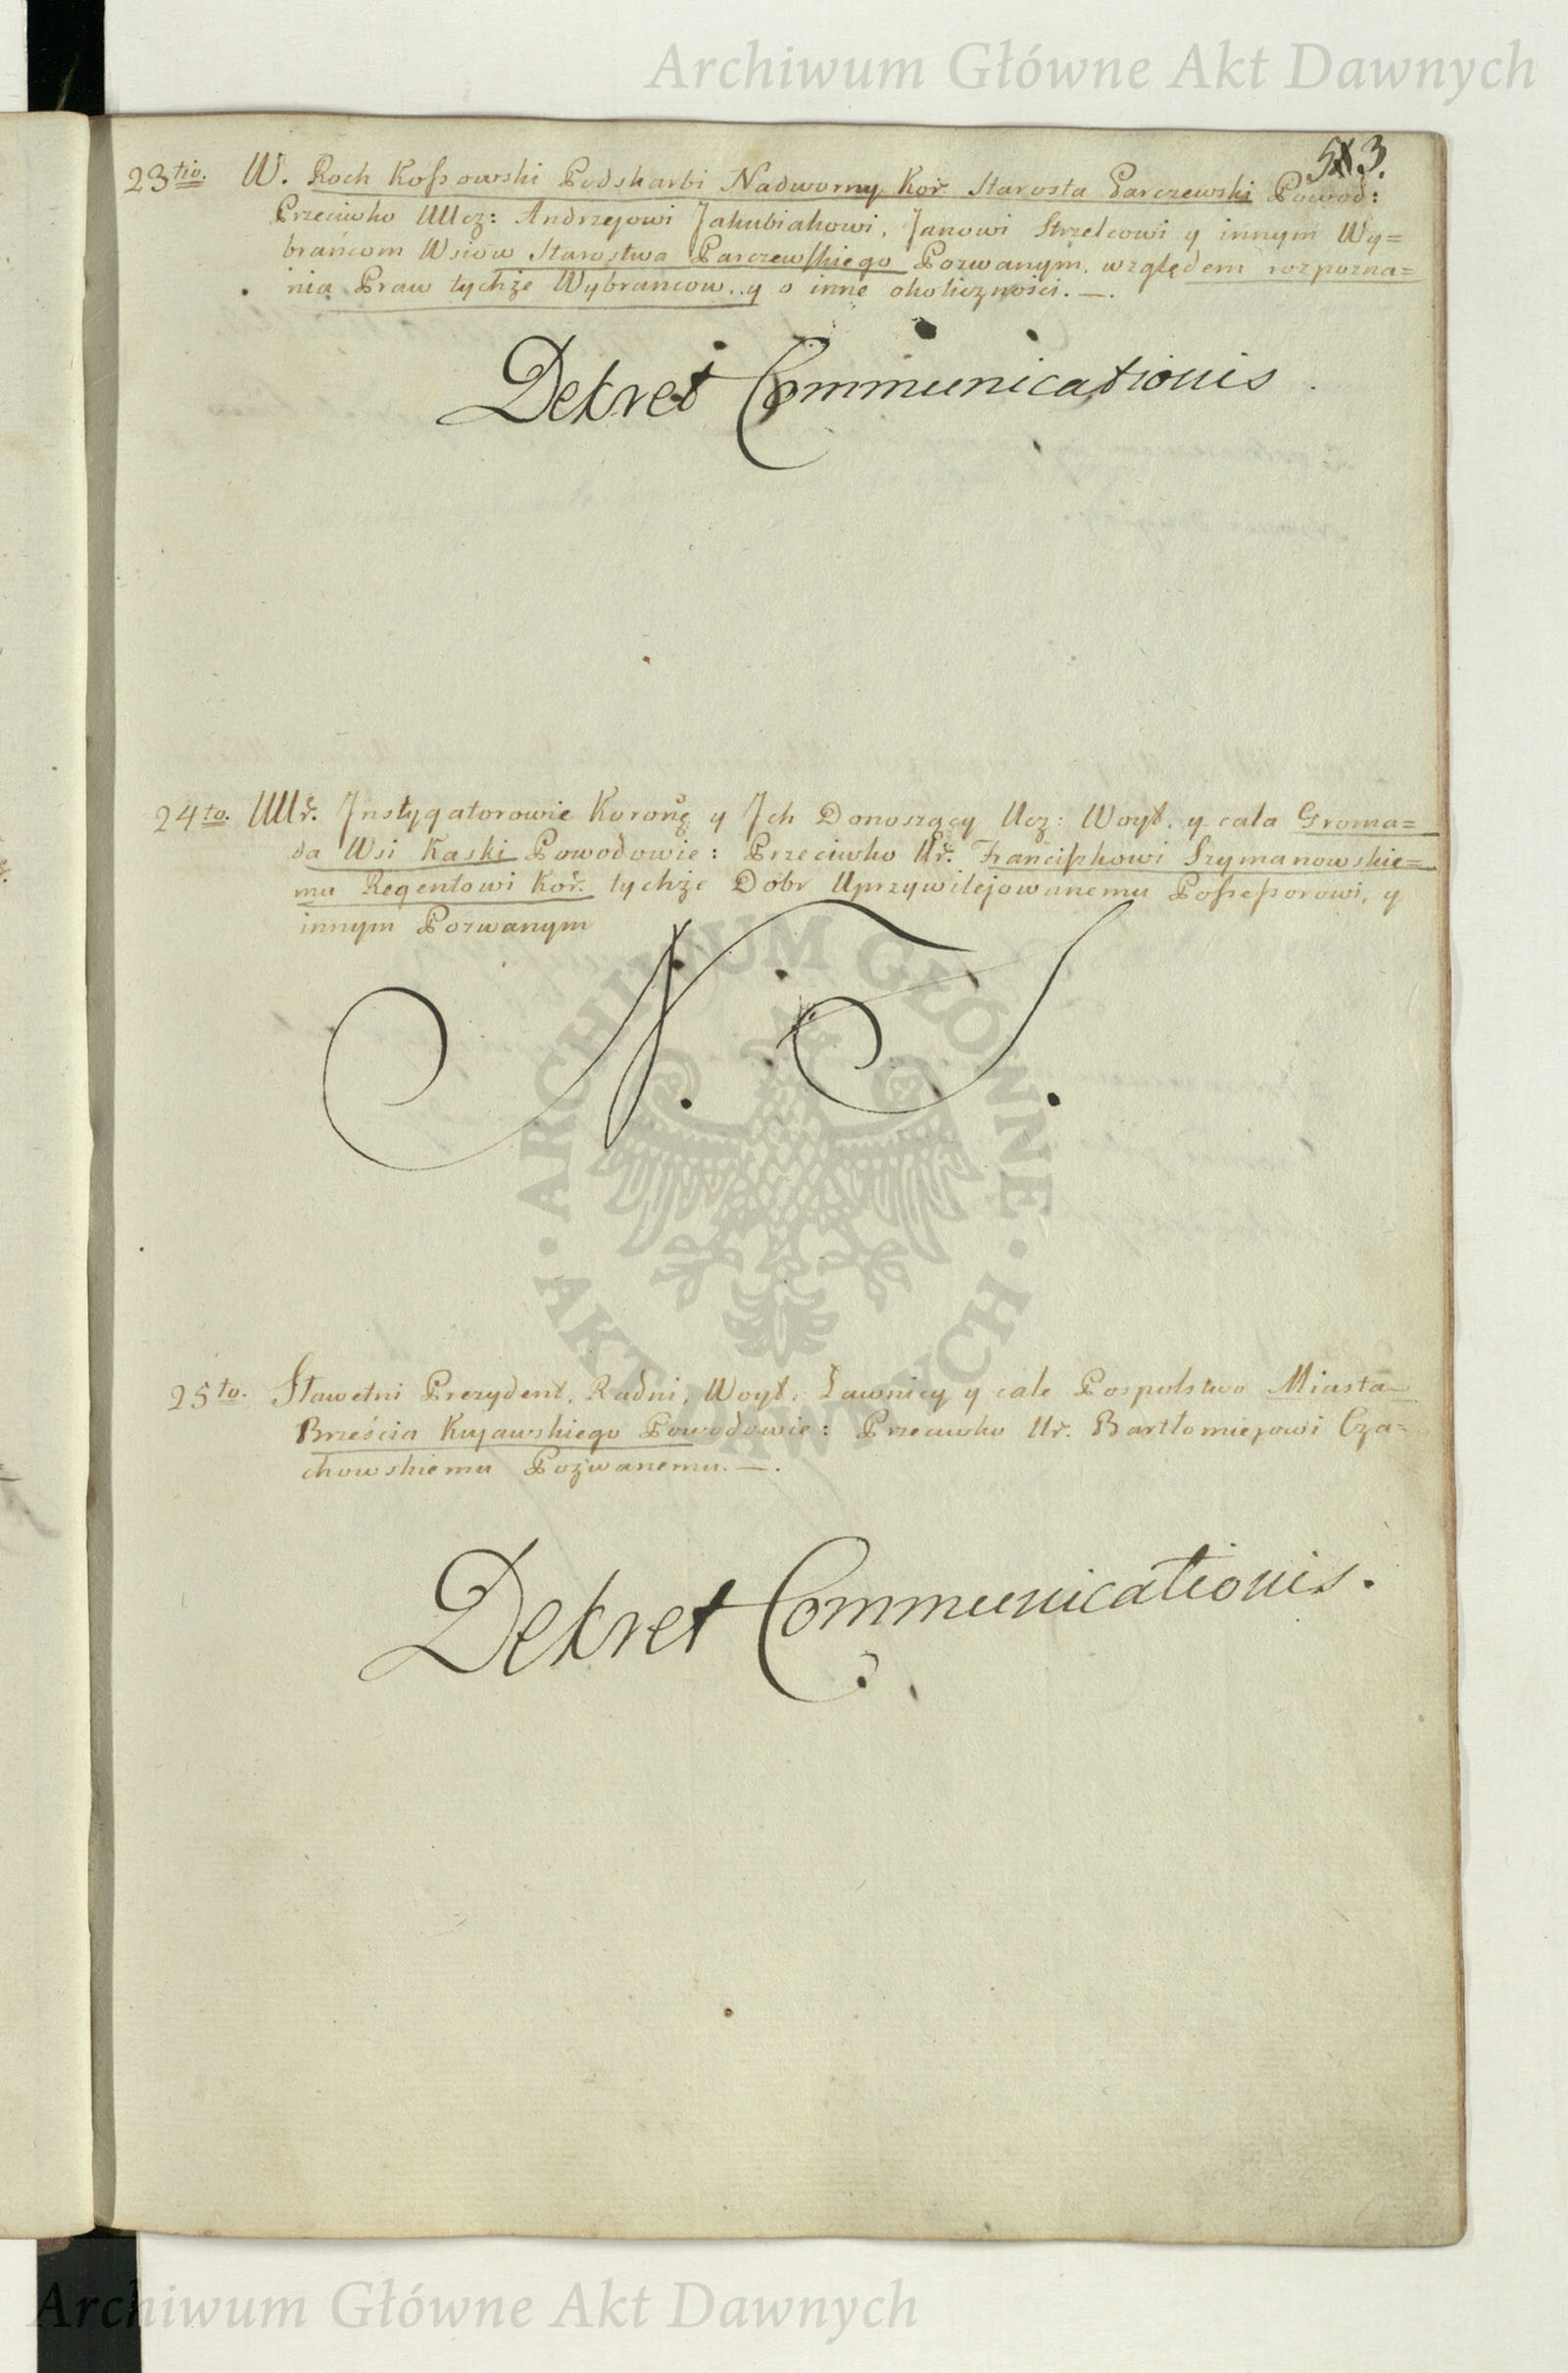 Archiwum Główne Akt Dawnych
513.
23tio. W. Roch Koſsowski Podskarbi Nadworny Kor̃. Starosta Parczewski Powod:
Przeciwko UUcz: Andrzejowi Jakubiakowi, Janowi Strzelcowi y innym Wy=
brańcom Wsiow Starostwa Parczewſkiego Pozwanym, względem rozpozna=
nia Praw tychże Wybrancow.. y o inne okoliczności. —.
Dekret Communicationis.
24to. UUr̃. Jnstygatorowie Koronę y Jch Donoszący Ucz: Woyt, y cala Groma=
da Wsi Kaski Powodowie: Przeciwko Ur̃. Franciſzkowi Szymanowskie=
mu Regentowi Kor̃. tychże Dobr Uprzywilejowanemu Poſseſsorowi, y
innym Pozwanym
N. T.
ARCHIWUM GŁÓWNE
· AKT DAWNYCH ·
25to. Sławetni Prezydent, Radni, Woyt, Ławnicy y cale Pospolstwo Miasta
Brześcia Kujawskiego Powodowie: Przeciwko Ur̃. Bartłomiejowi Cza=
chowskiemu Pozwanemu. —.
Dekret Communicationis.
Archiwum Główne Akt Dawnych